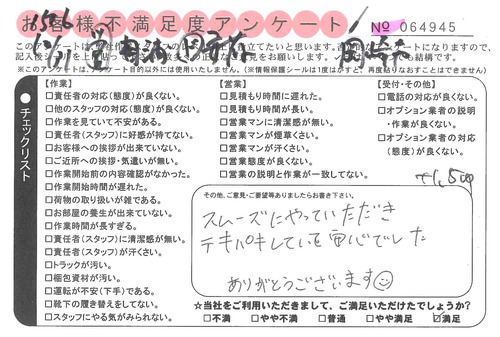 お客様不満足度アンケート
No 064945
記入後
※このアンケートは、アンケート目的以外には使用いたしません。(情報保護シールは1度はがすと、再度貼りなおすことはできません)
チェックリスト
【作業】
□責任者の対応(態度)が良くない。
□他のスタッフの対応(態度)が良くない。
□作業を見ていて不安がある。
□責任者(スタッフ)に好感が持てない。
□お客様への挨拶が出来ていない。
□ご近所への挨拶・気遣いが無い。
□作業開始前の内容確認がなかった。
□作業開始時間が遅れた。
□荷物の取り扱いが雑である。
□お部屋の養生が出来ていない。
□作業時間が長すぎる。
□責任者(スタッフ)に清潔感が無い。
□責任者(スタッフ)が汗くさい。
□トラックが汚い。
□梱包資材が汚い。
□運転が不安(下手)である。
□靴下の履き替えをしてない。
□スタッフにやる気がみられない。
【営業】
□見積もり時間に遅れた。
□見積もり時間が長い。
□営業マンに清潔感が無い。
□営業マンが煙草くさい。
□営業マンが汗くさい。
□営業態度が良くない。
□営業の説明と作業が一致してない。
【受付・その他】
□電話の対応が良くない。
□オプション業者の説明
・作業が良くない。
□オプション業者の対応
(態度)が良くない。
その他、ご意見・ご要望等ありましたらお書き下さい。
スムーズにやっていただき
テキパキしている
ありがとうございます
☆当社をご利用いただきまして、ご満足いただけたでしょうか?
□不満 □やや不満 □普通 □やや満足 ☑満足